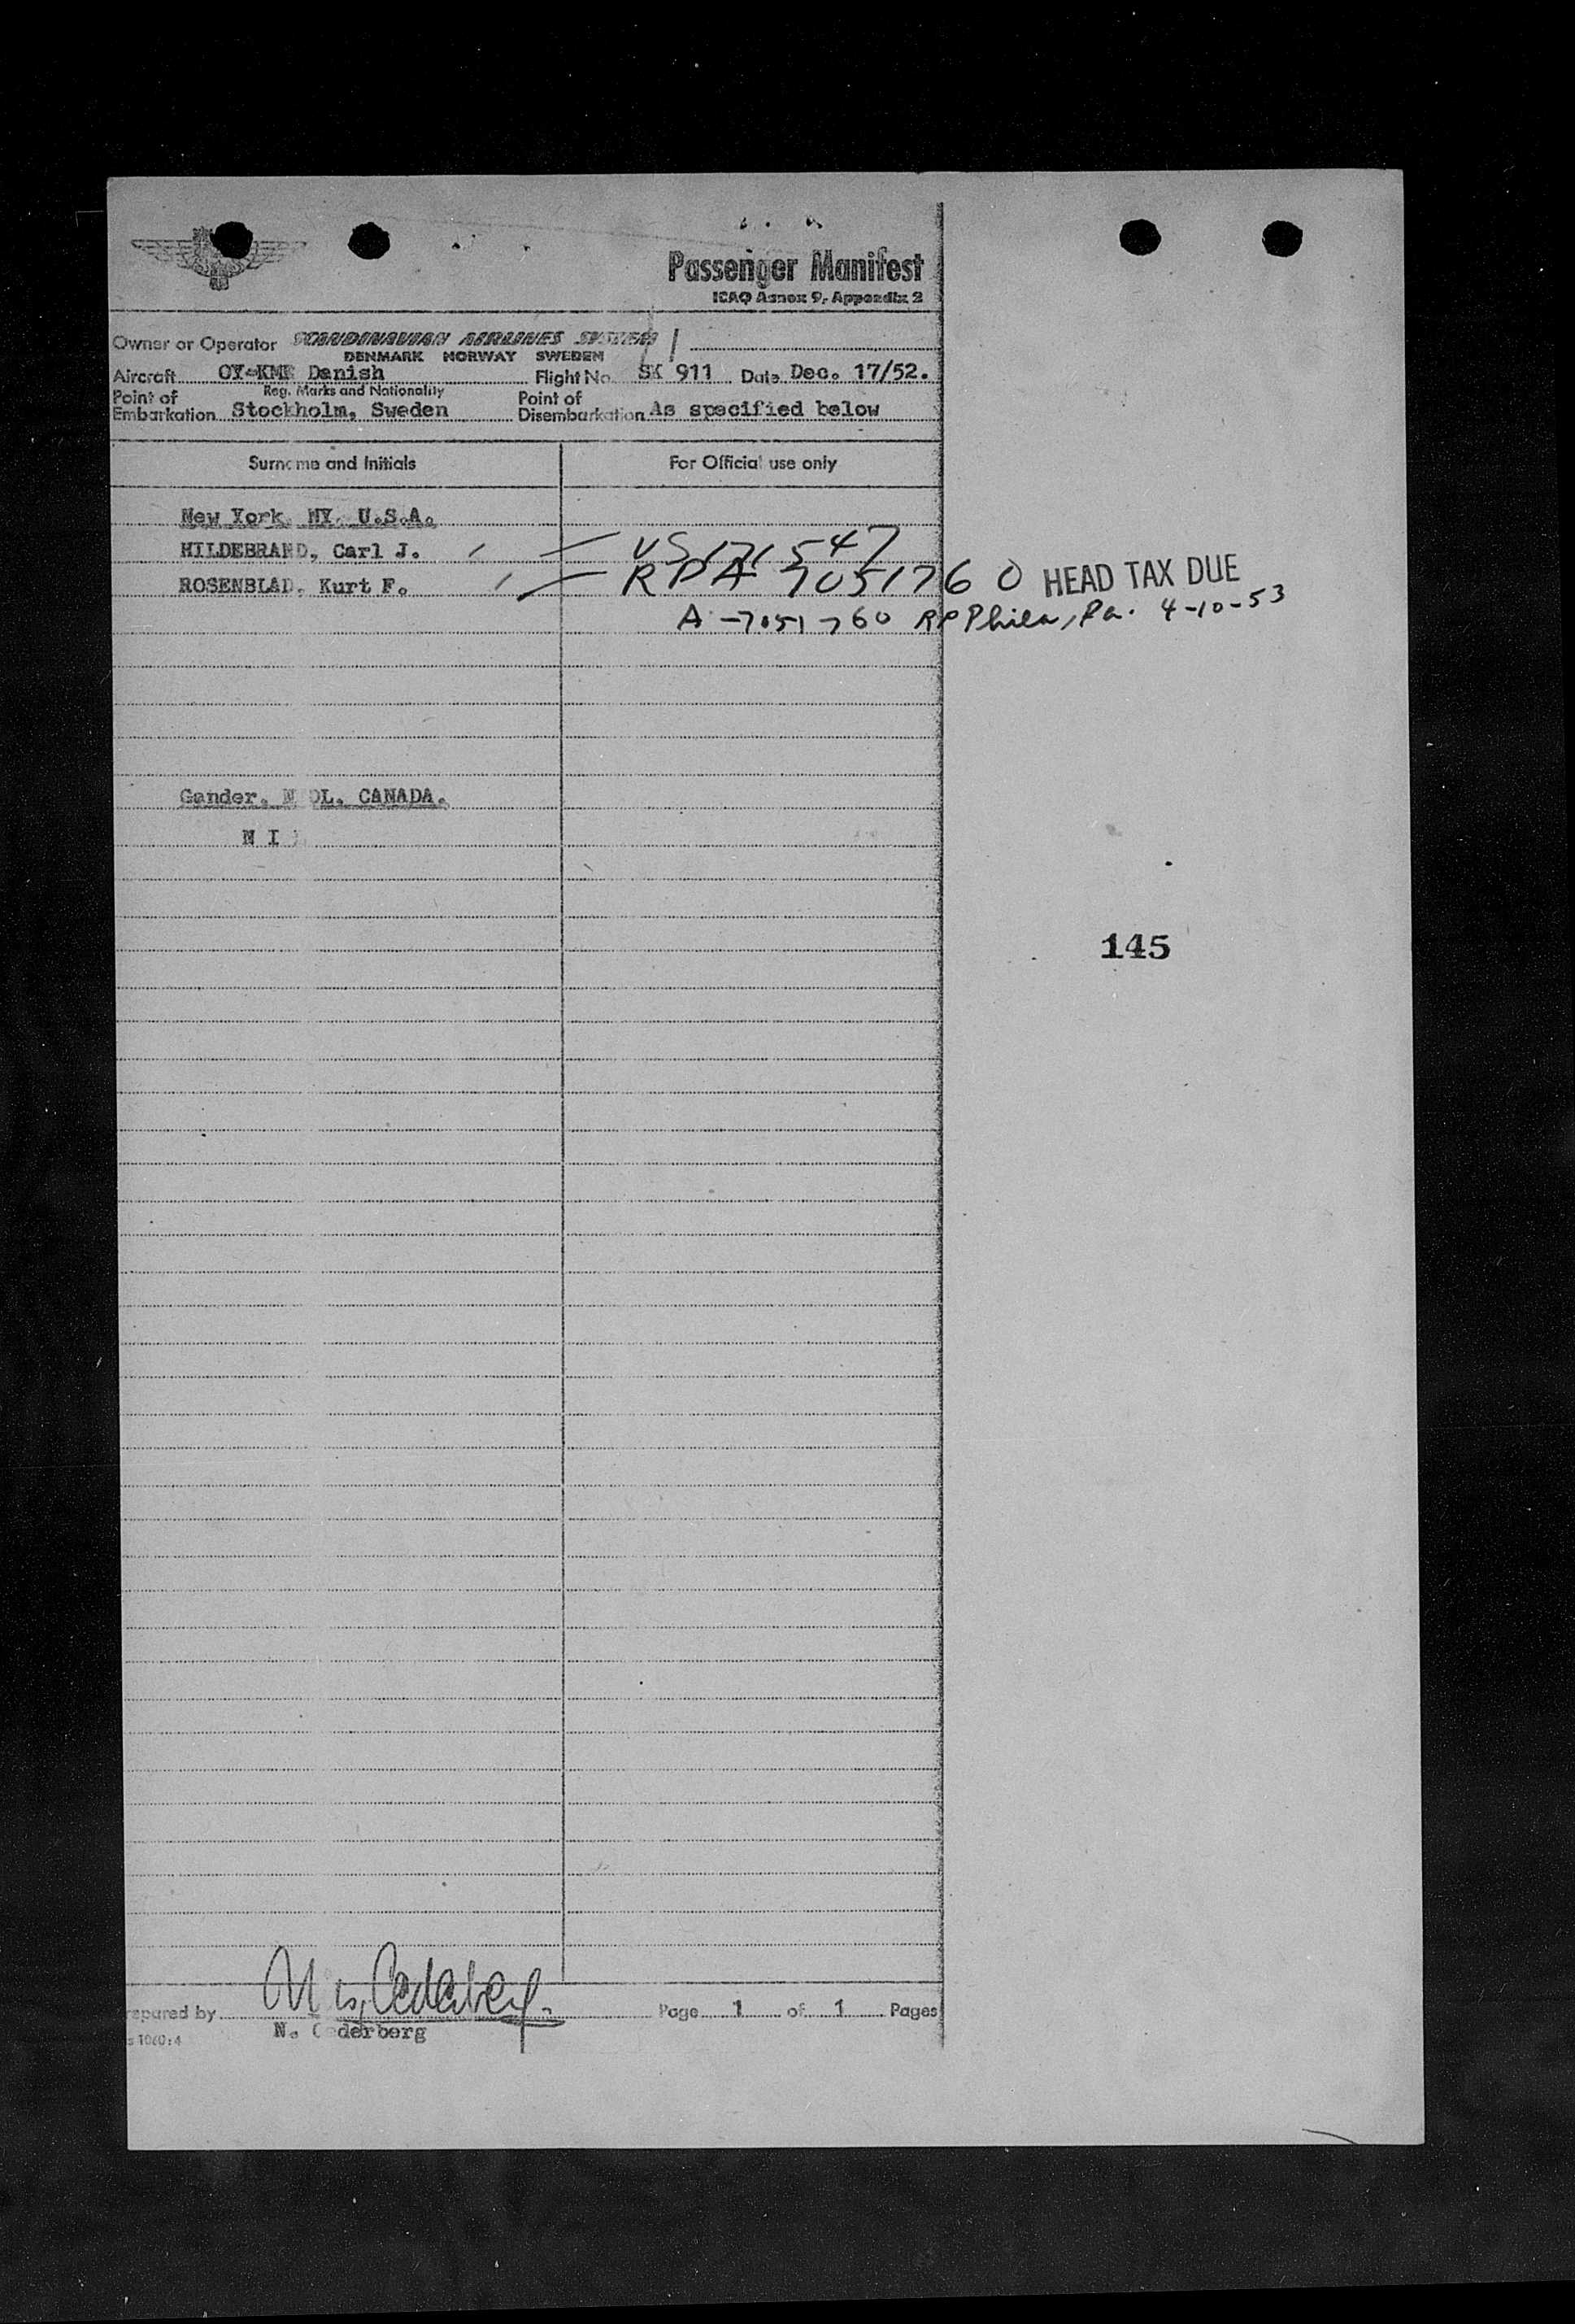 Passenger Manifest
ICAO Annex 9, Appendix 2
Owner or Operator SCANDINAVIAN AIRLINES SYSTEM
DENMARK NORWAY SWEDEN
Aircraft OY-KMR Danish Flight No. SK 911 Date Dec. 17/52.
Reg. Marks and Nationality
Point of Embarkation Stockholm, Sweden Point of Disembarkation As specified below
Surname and Initials For Official use only
New York, NY. U.S.A.
HILDEBRAND, Carl J. US 171547
ROSENBLAD, Kurt F. RPA 7051760 HEAD TAX DUE
A-7051760 RP Phila, Pa. 4-10-53
Gander. N OL. CANADA.
N I
145
repared by Page 1 of 1 Pages
N. C derberg
s 1060:4